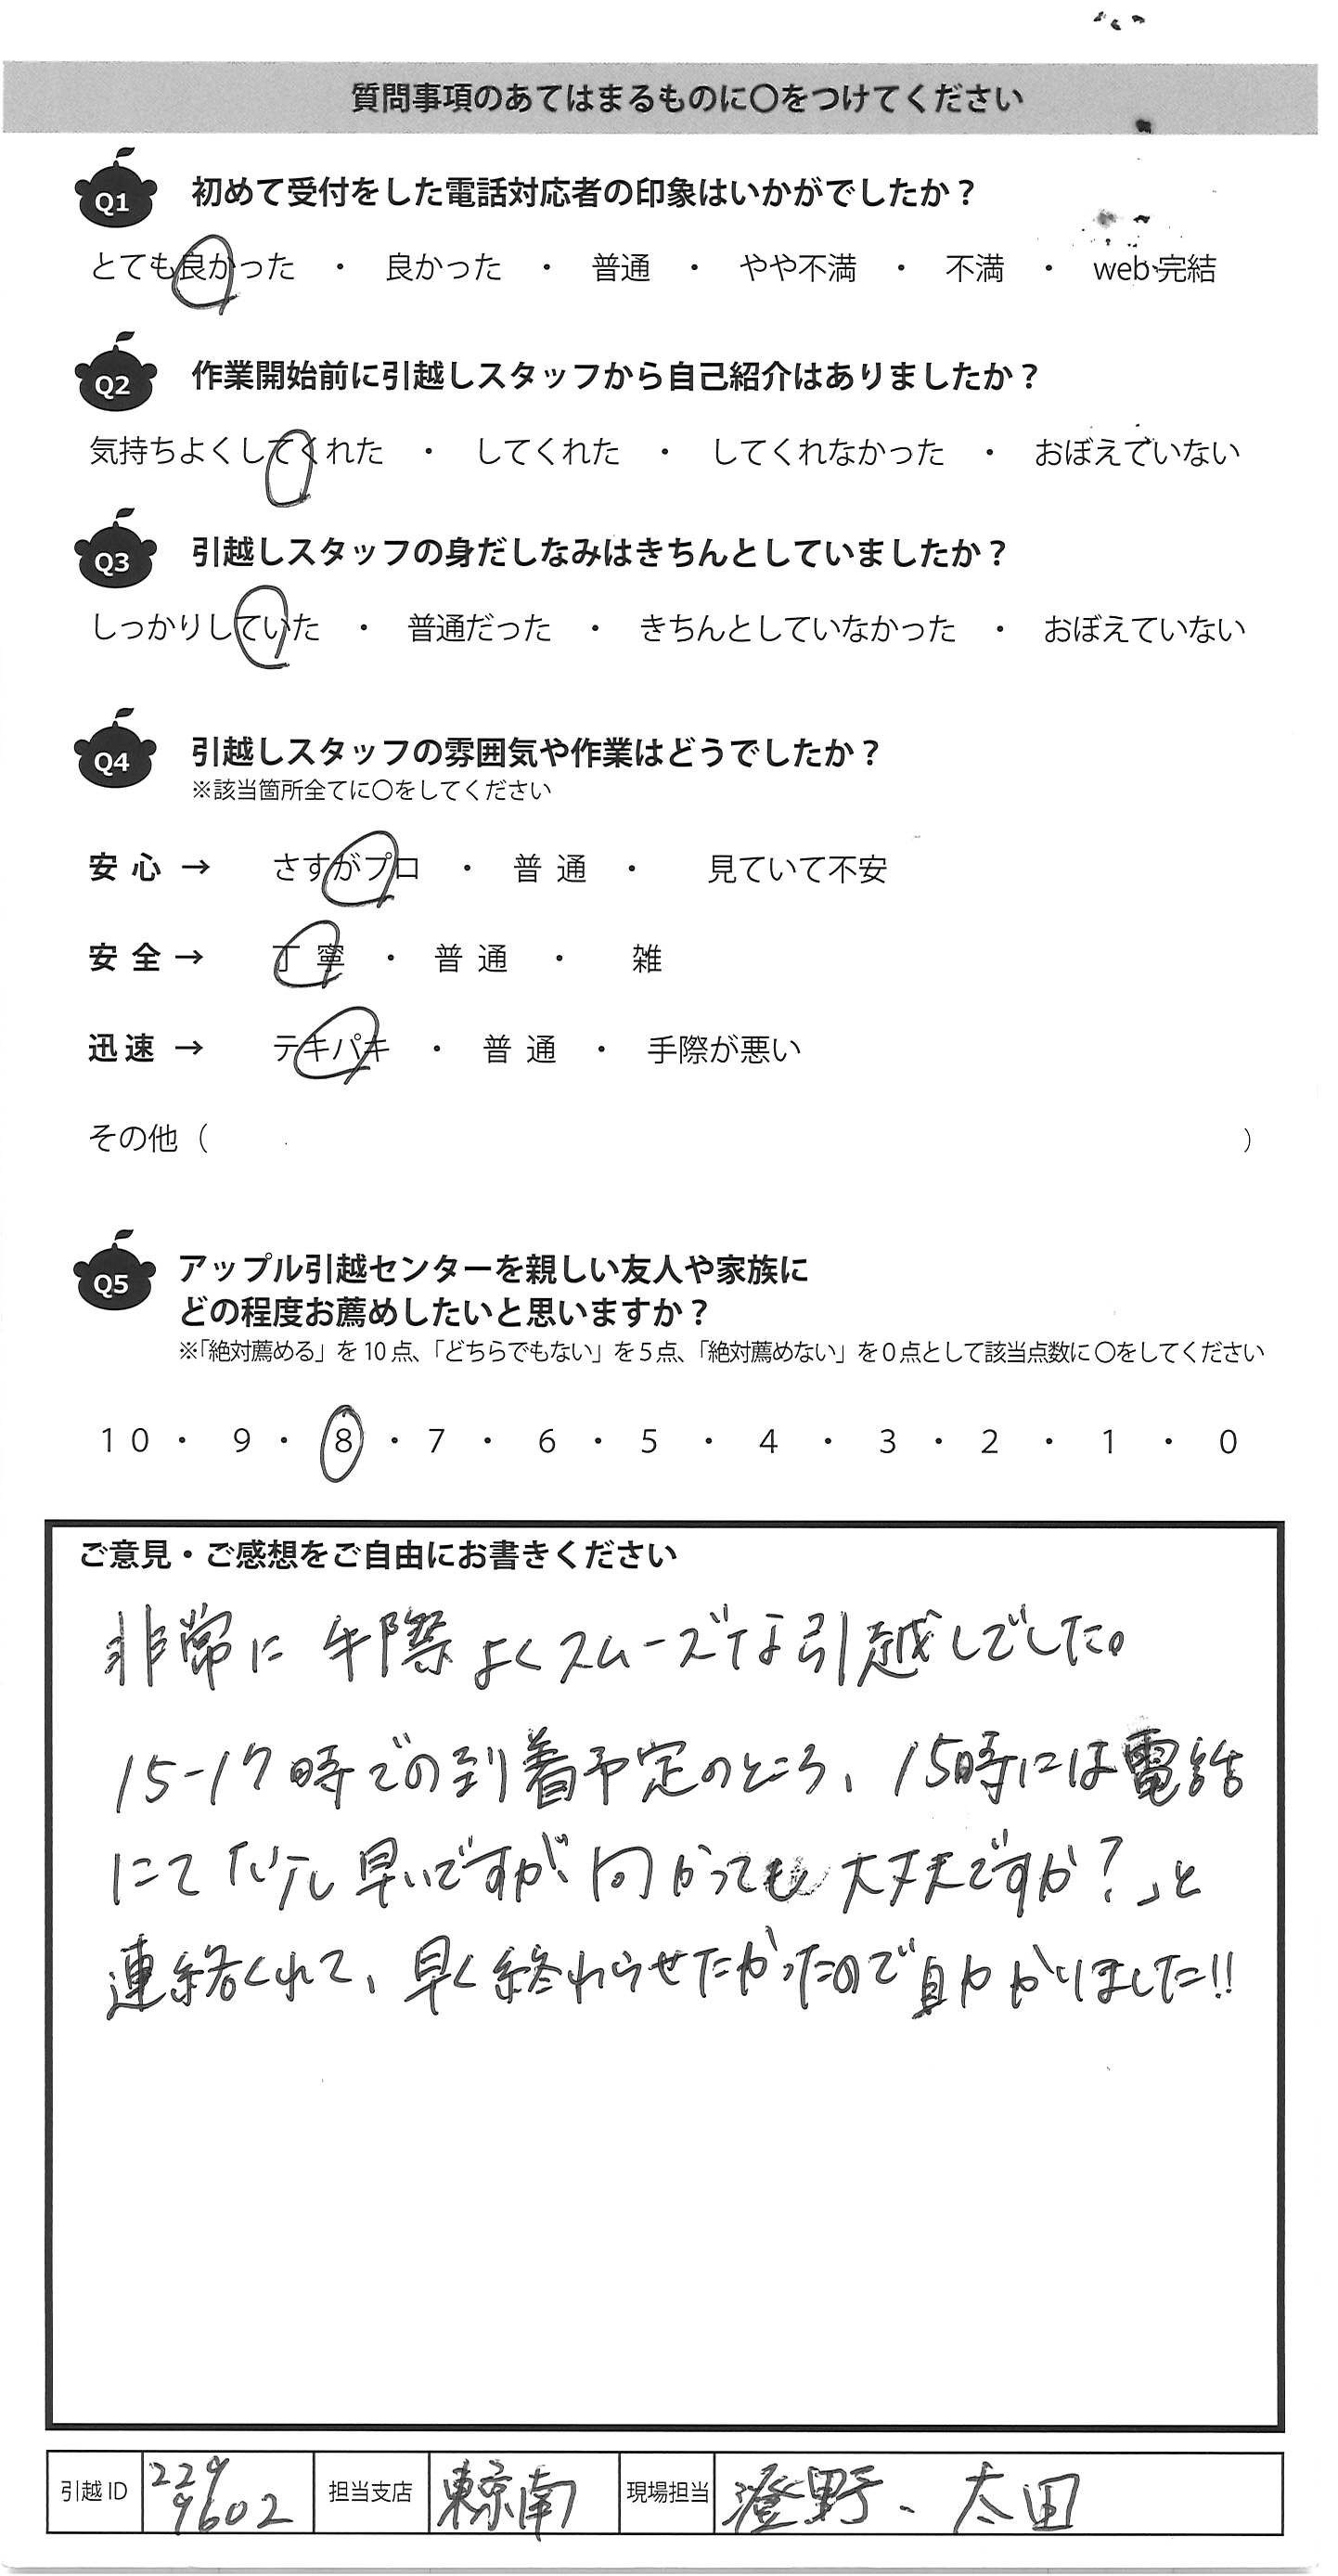 質問事項のあてはまるものに〇をつけてください
Q1 初めて受付をした電話対応者の印象はいかがでしたか？
とても良かった ・ 良かった ・ 普通 ・ やや不満 ・ 不満 ・ web完結
Q2 作業開始前に引越しスタッフから自己紹介はありましたか？
気持ちよくしてくれた ・ してくれた ・ してくれなかった ・ おぼえていない
Q3 引越しスタッフの身だしなみはきちんとしていましたか？
しっかりしていた ・ 普通だった ・ きちんとしていなかった ・ おぼえていない
Q4 引越しスタッフの雰囲気や作業はどうでしたか？
※該当箇所全てに〇をしてください
安心 → さすがプロ ・ 普通 ・ 見ていて不安
安全 → 丁寧 ・ 普通 ・ 雑
迅速 → テキパキ ・ 普通 ・ 手際が悪い
その他（ ）
Q5 アップル引越センターを親しい友人や家族に
どの程度お薦めしたいと思いますか？
※「絶対薦める」を10点、「どちらでもない」を5点、「絶対薦めない」を0点として該当点数に〇をしてください
10 ・ 9 ・ 8 ・ 7 ・ 6 ・ 5 ・ 4 ・ 3 ・ 2 ・ 1 ・ 0
ご意見・ご感想をご自由にお書きください
非常に手際よくスムーズな引越しでした。
15-17時での到着予定のところ、15時には電話
にて「少し早いですが、向かっても大丈夫ですか？」と
連絡くれて、早く終わらせたかったので助かりました!!
引越ID 229 9602 担当支店 東京南 現場担当 澄野、太田